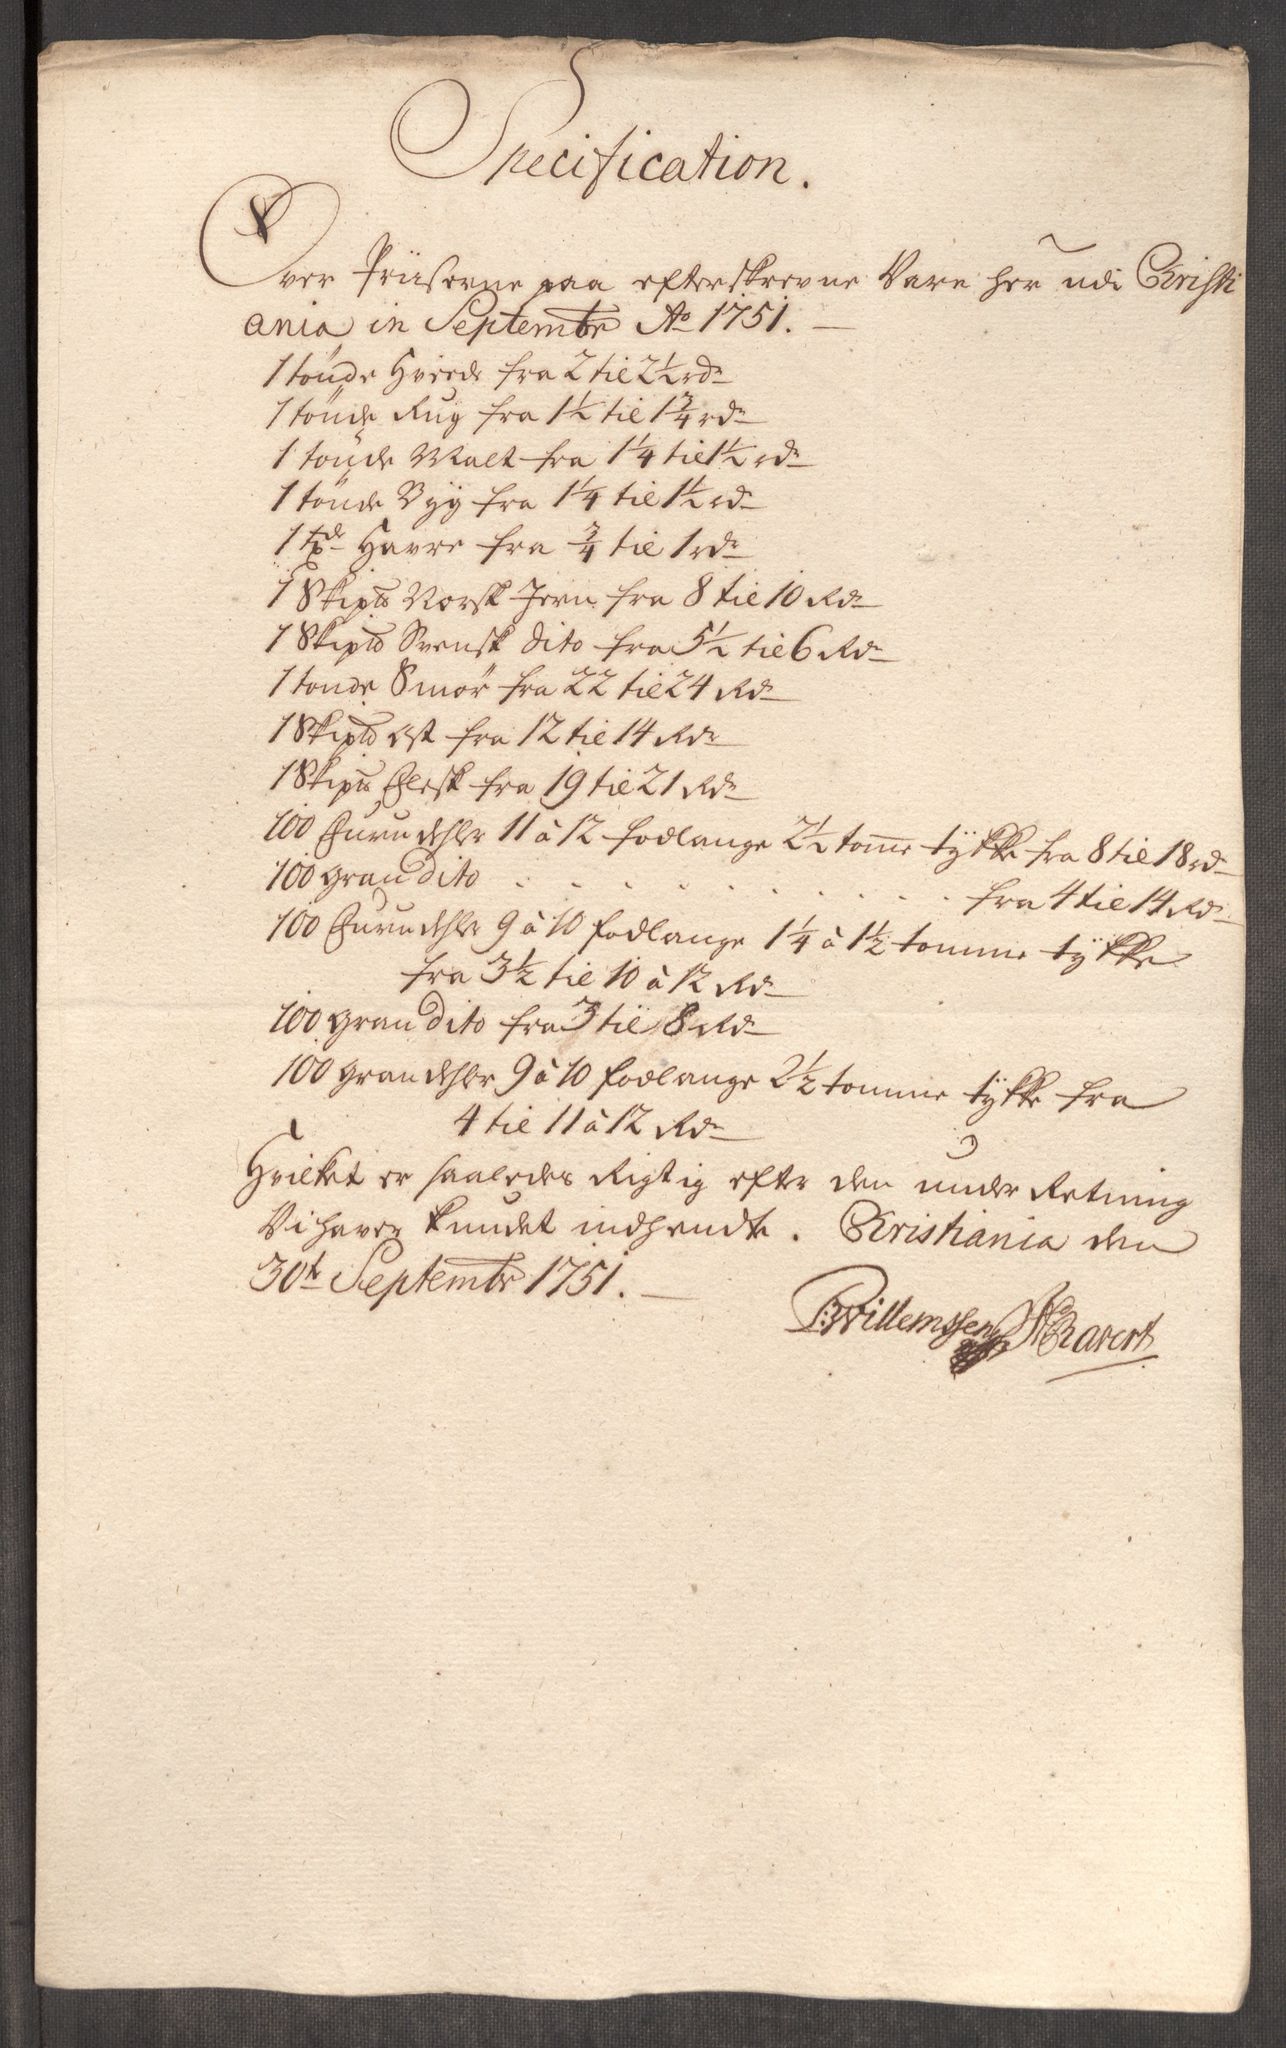 Specification.
Over Priiserne paa efterskrevne Vare her udi Christi
ania in Septembr Ao 1751.
1 tönde Hvede fra 2 til 2½ rdr
1 tönde Rug fra 1½ til 1¾ rdr
1 tönde Malt fra 1¼ til 1½ rdr
1 tönde Byg fra 1¼ til 1½ rdr
1 tde Havre fra ¾ til 1 rdr
1 Skipd Norsk Jern fra 8 til 10 Rdr
1 Skipd Svensk dito fra 5½ til 6 Rdr
1 tonde Smör fra 22 til 24 Rdr
1 Skipd Ost fra 12 til 14 Rdr
1 Skipd Flesk fra 19 til 21 Rdr
100 Furu dehler 11 à 12 fodlange 2½ tome tÿkke fra 8 til 18 rdr
100 gran dito . . . . . . . . . . fra 4 til 14 Rdr
100 Furu dehler 9 à 10 fodlange 1¼ à 1½ tomme tÿkke
fra 3½ til 10 à 12 Rdr
100 gran dito fra 3 til 8 Rdr
100 gran dehler 9 à 10 fodlange 2½ tomme tÿkke fra
4 til 11 à 12 Rdr
Hvilket er saaledes Rigtig efter den under Retning
Vi haver kundet indhendte. Christiania den
30te Septembr 1751.
Willemssen Ravert